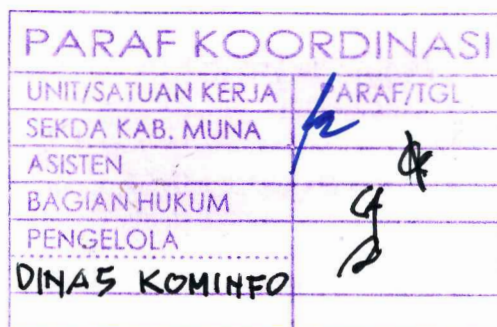 PARAF KOORDINASI
UNIT/SATUAN KERJA PARAF/TGL
SEKDA KAB. MUNA
ASISTEN
BAGIAN HUKUM
PENGELOLA
DINAS KOMINFO